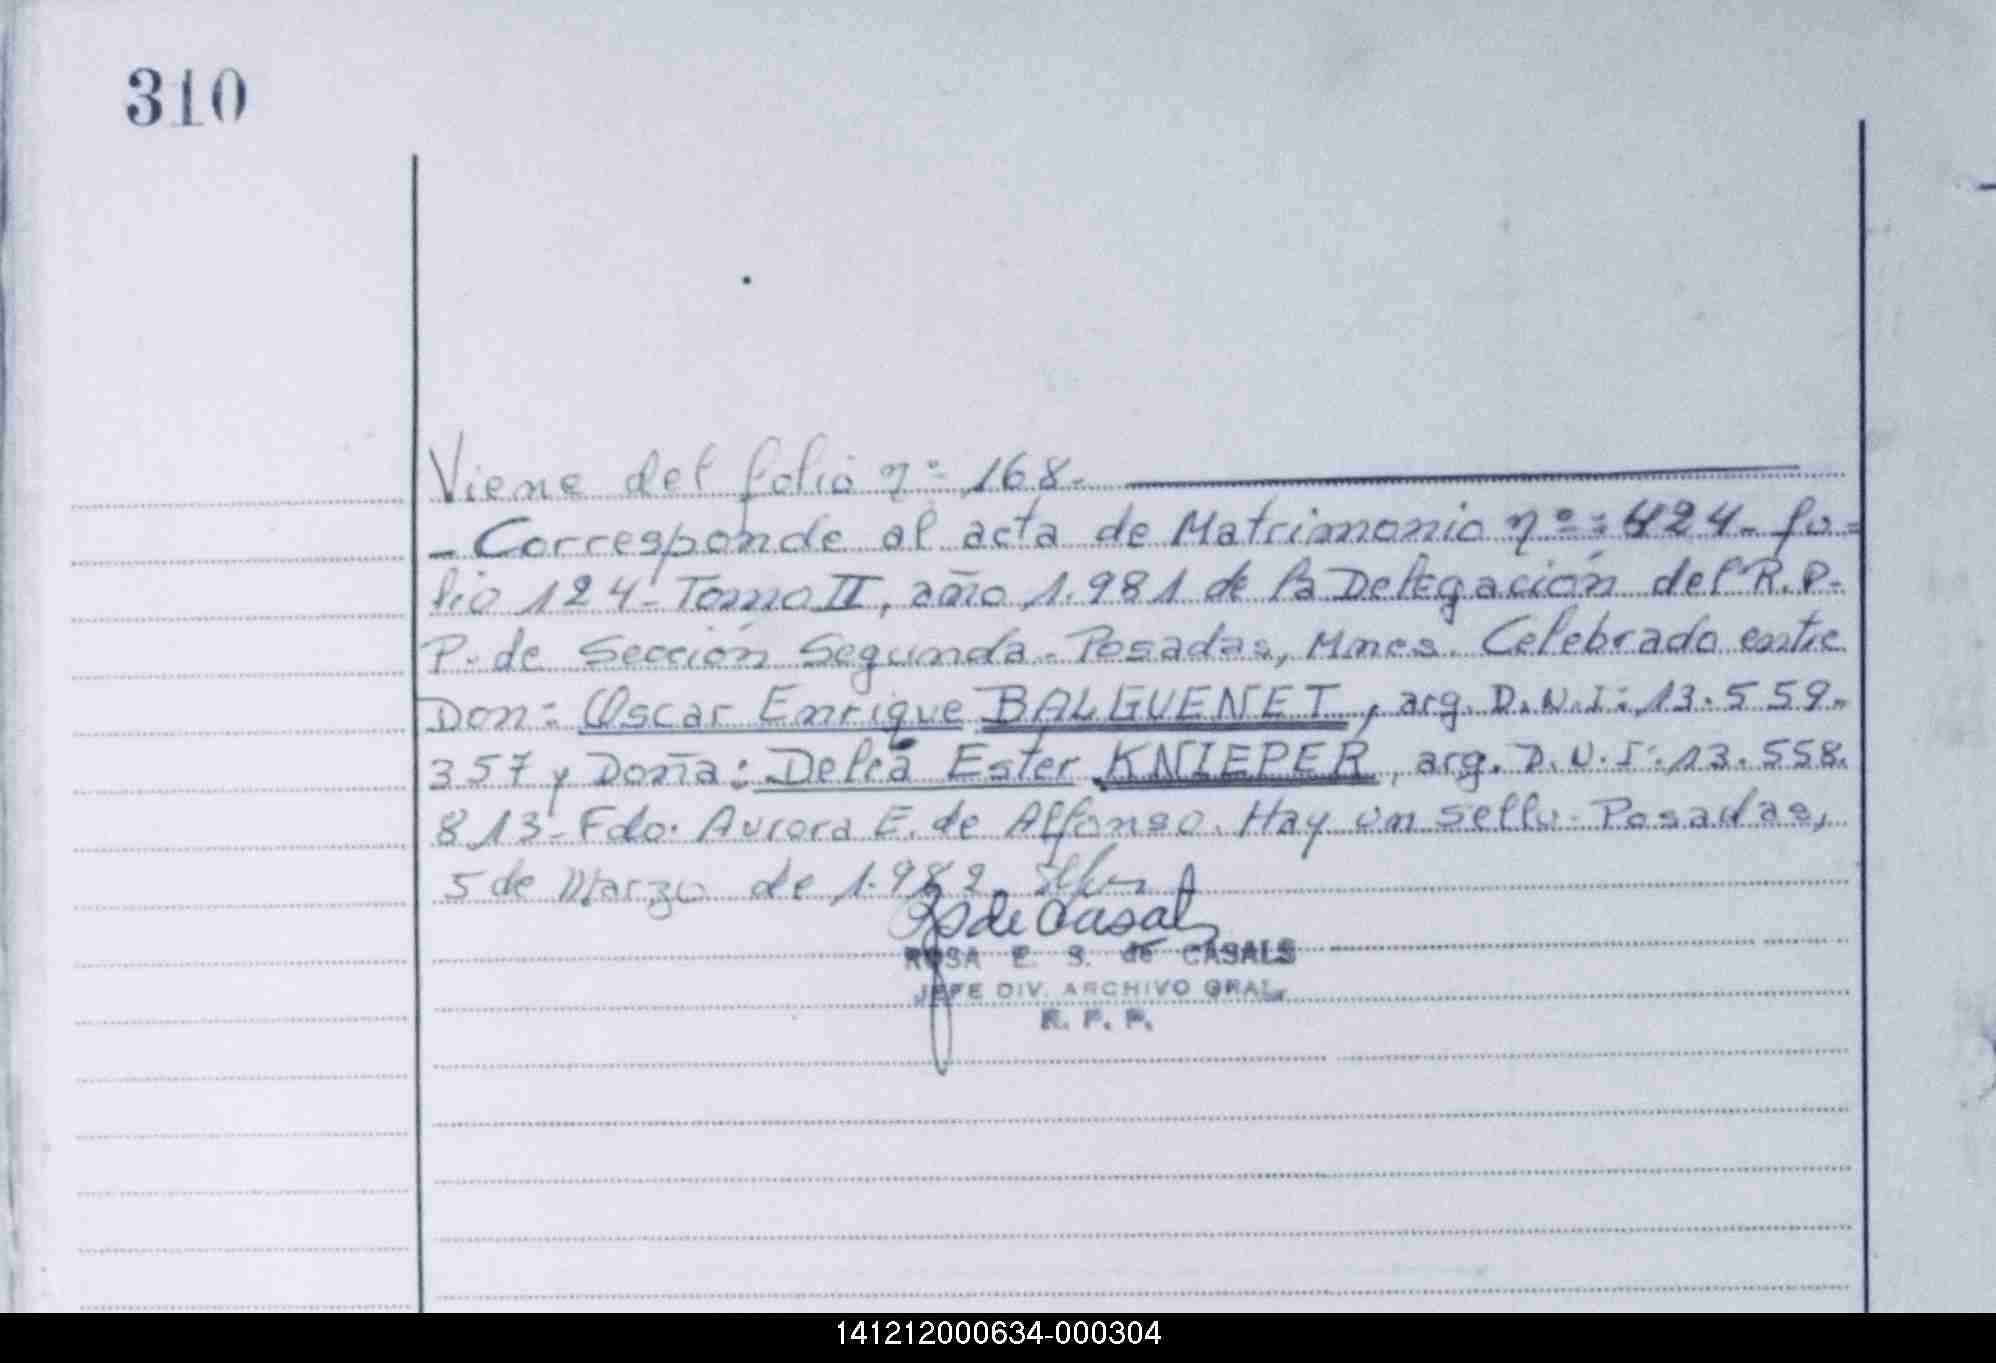 310
Viene del folio nº 168.
- Corresponde al acta de Matrimonio nº: 424- fo=
lio 124- Tomo II, año 1.981 de la Delegación del R.P.
P. de Sección Segunda- Posadas, Mnes. Celebrado entre
Don: Oscar Enrique BALGUENET, arg. D.N.I: 13.559.
357 y Doña: Delia Ester KNIEPER, arg. D.N.I: 13.558.
813- Fdo. Aurora E. de Alfonso. Hay un sello- Posadas,
5 de Marzo de 1.982.
de Casals
ROSA E. S. de CASALS
JEFE DIV. ARCHIVO GRAL.
R. P. P.
141212000634-000304